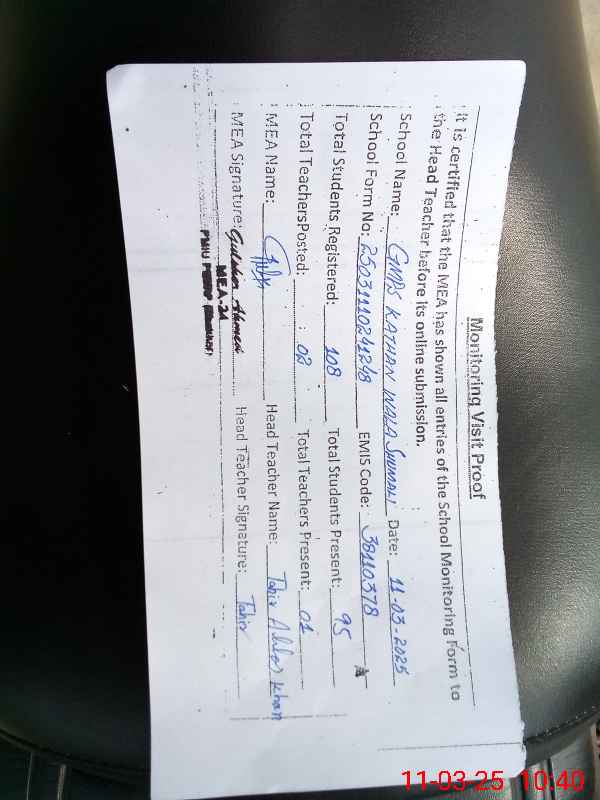 Monitoring Visit Proof
It is certified that the MEA has shown all entries of the School Monitoring Form to
the Head Teacher before its online submission.
School Name: GMPS KATHAN WALA SHUMALI Date: 11-03-2025
School Form No: 25031110241248 EMIS Code: 38110378
Total Students Registered: 108 Total Students Present: 95
Total TeachersPosted: 02 Total Teachers Present: 01
MEA Name: Head Teacher Name: Tahir Abbas Khan
MEA Signature: Ahmed Head Teacher Signature: Tahir
MEA-24
PMIU
11-03-25 10:40